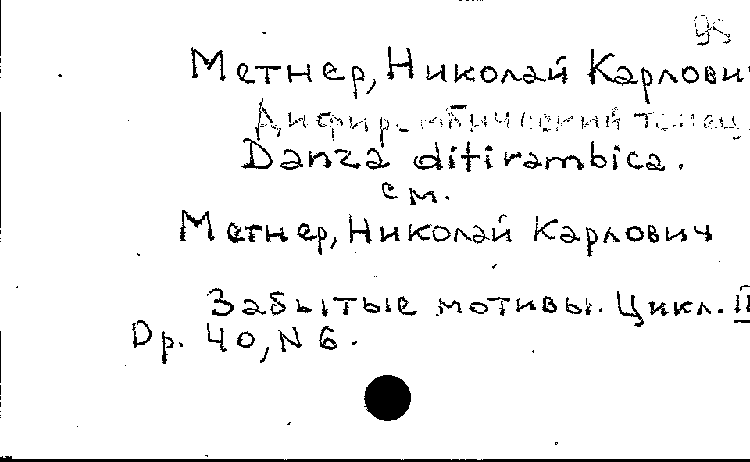 95
Метнер, Николай Карлович
Дифирамбический танец.
Danza ditirambica.
см.
Метнер, Николай Карлович
Забытые мотивы. Цикл. II
Op. 40, N 6.